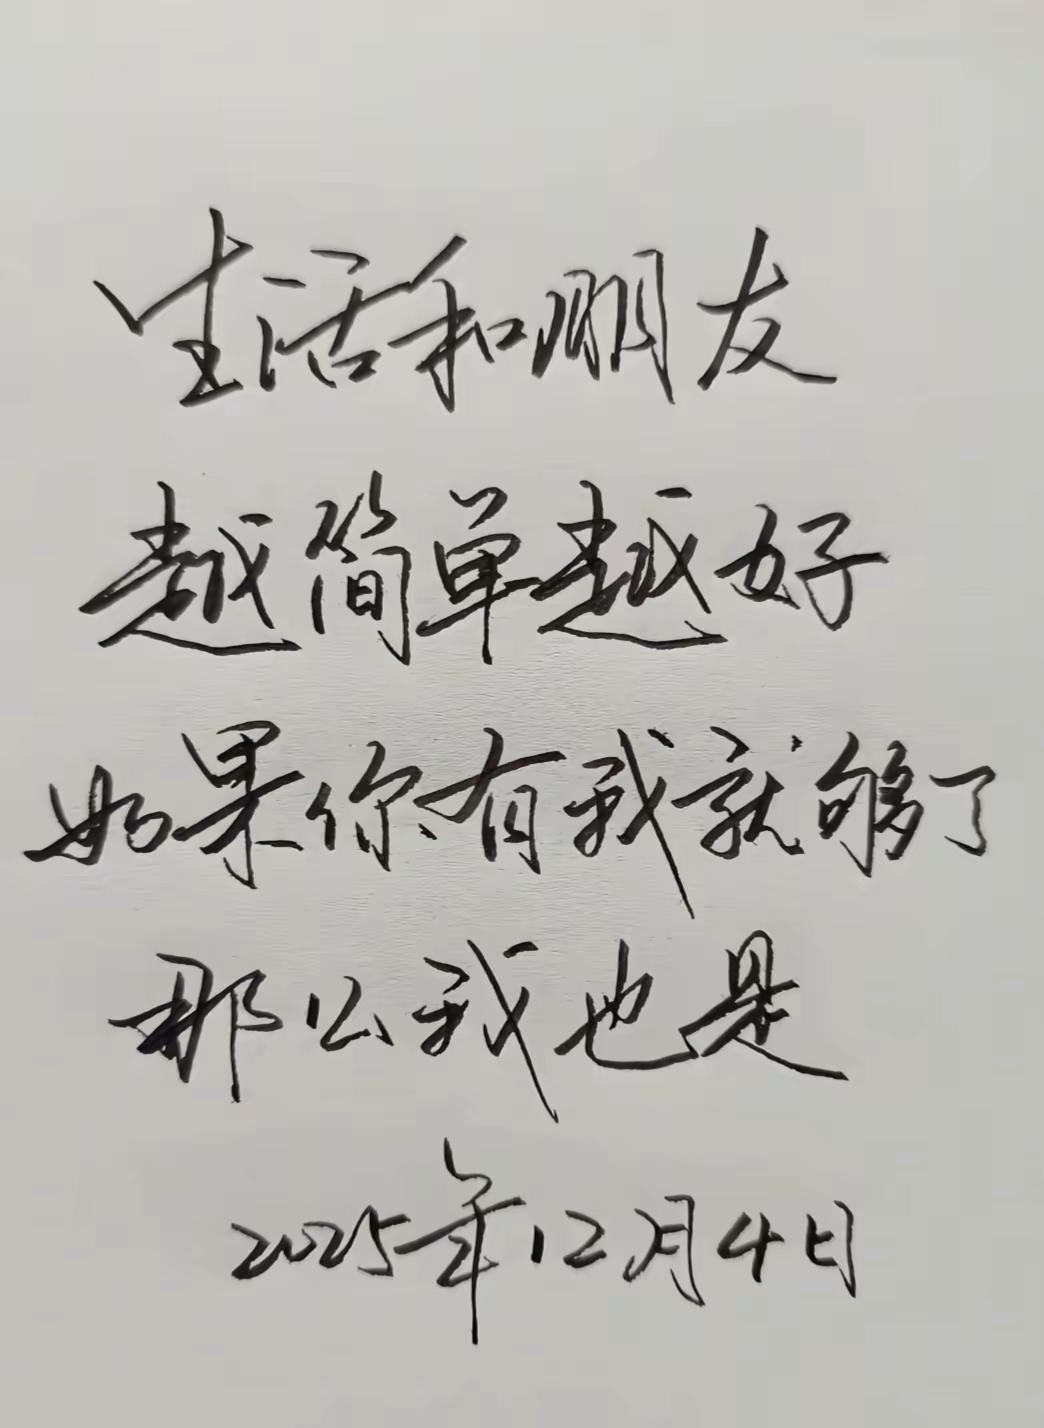 生活和朋友
越简单越好
如果你有我就够了
那么我也是
2025年12月4日